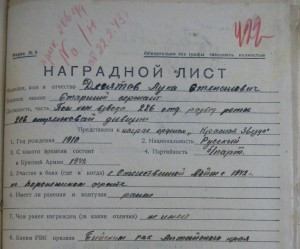 422
Форма № 6
Обязательно все графы заполнять полностью
НАГРАДНОЙ ЛИСТ
имя и отчество Десятов Лука Степанович
звание Старший сержант
часть Пом. ком. взвода 226 отд. развед роты
206 стрелковой дивизии
Представлен к награде орденом „Красная Звезда"
1. Год рождения 1910 2. Национальность Русский
3. С какого времени состоит 4. Партийность б/парт.
в Красной Армии 1942
5. Участие в боях (где и когда) в Отечественной войне с 1942 г.
на Воронежском фронте
6. Имеет ли ранения и контузии
7. Чем ранее награжден (за какие отличия) не имеет
8. Каким РВК призван Бийским гвк Алтайского края